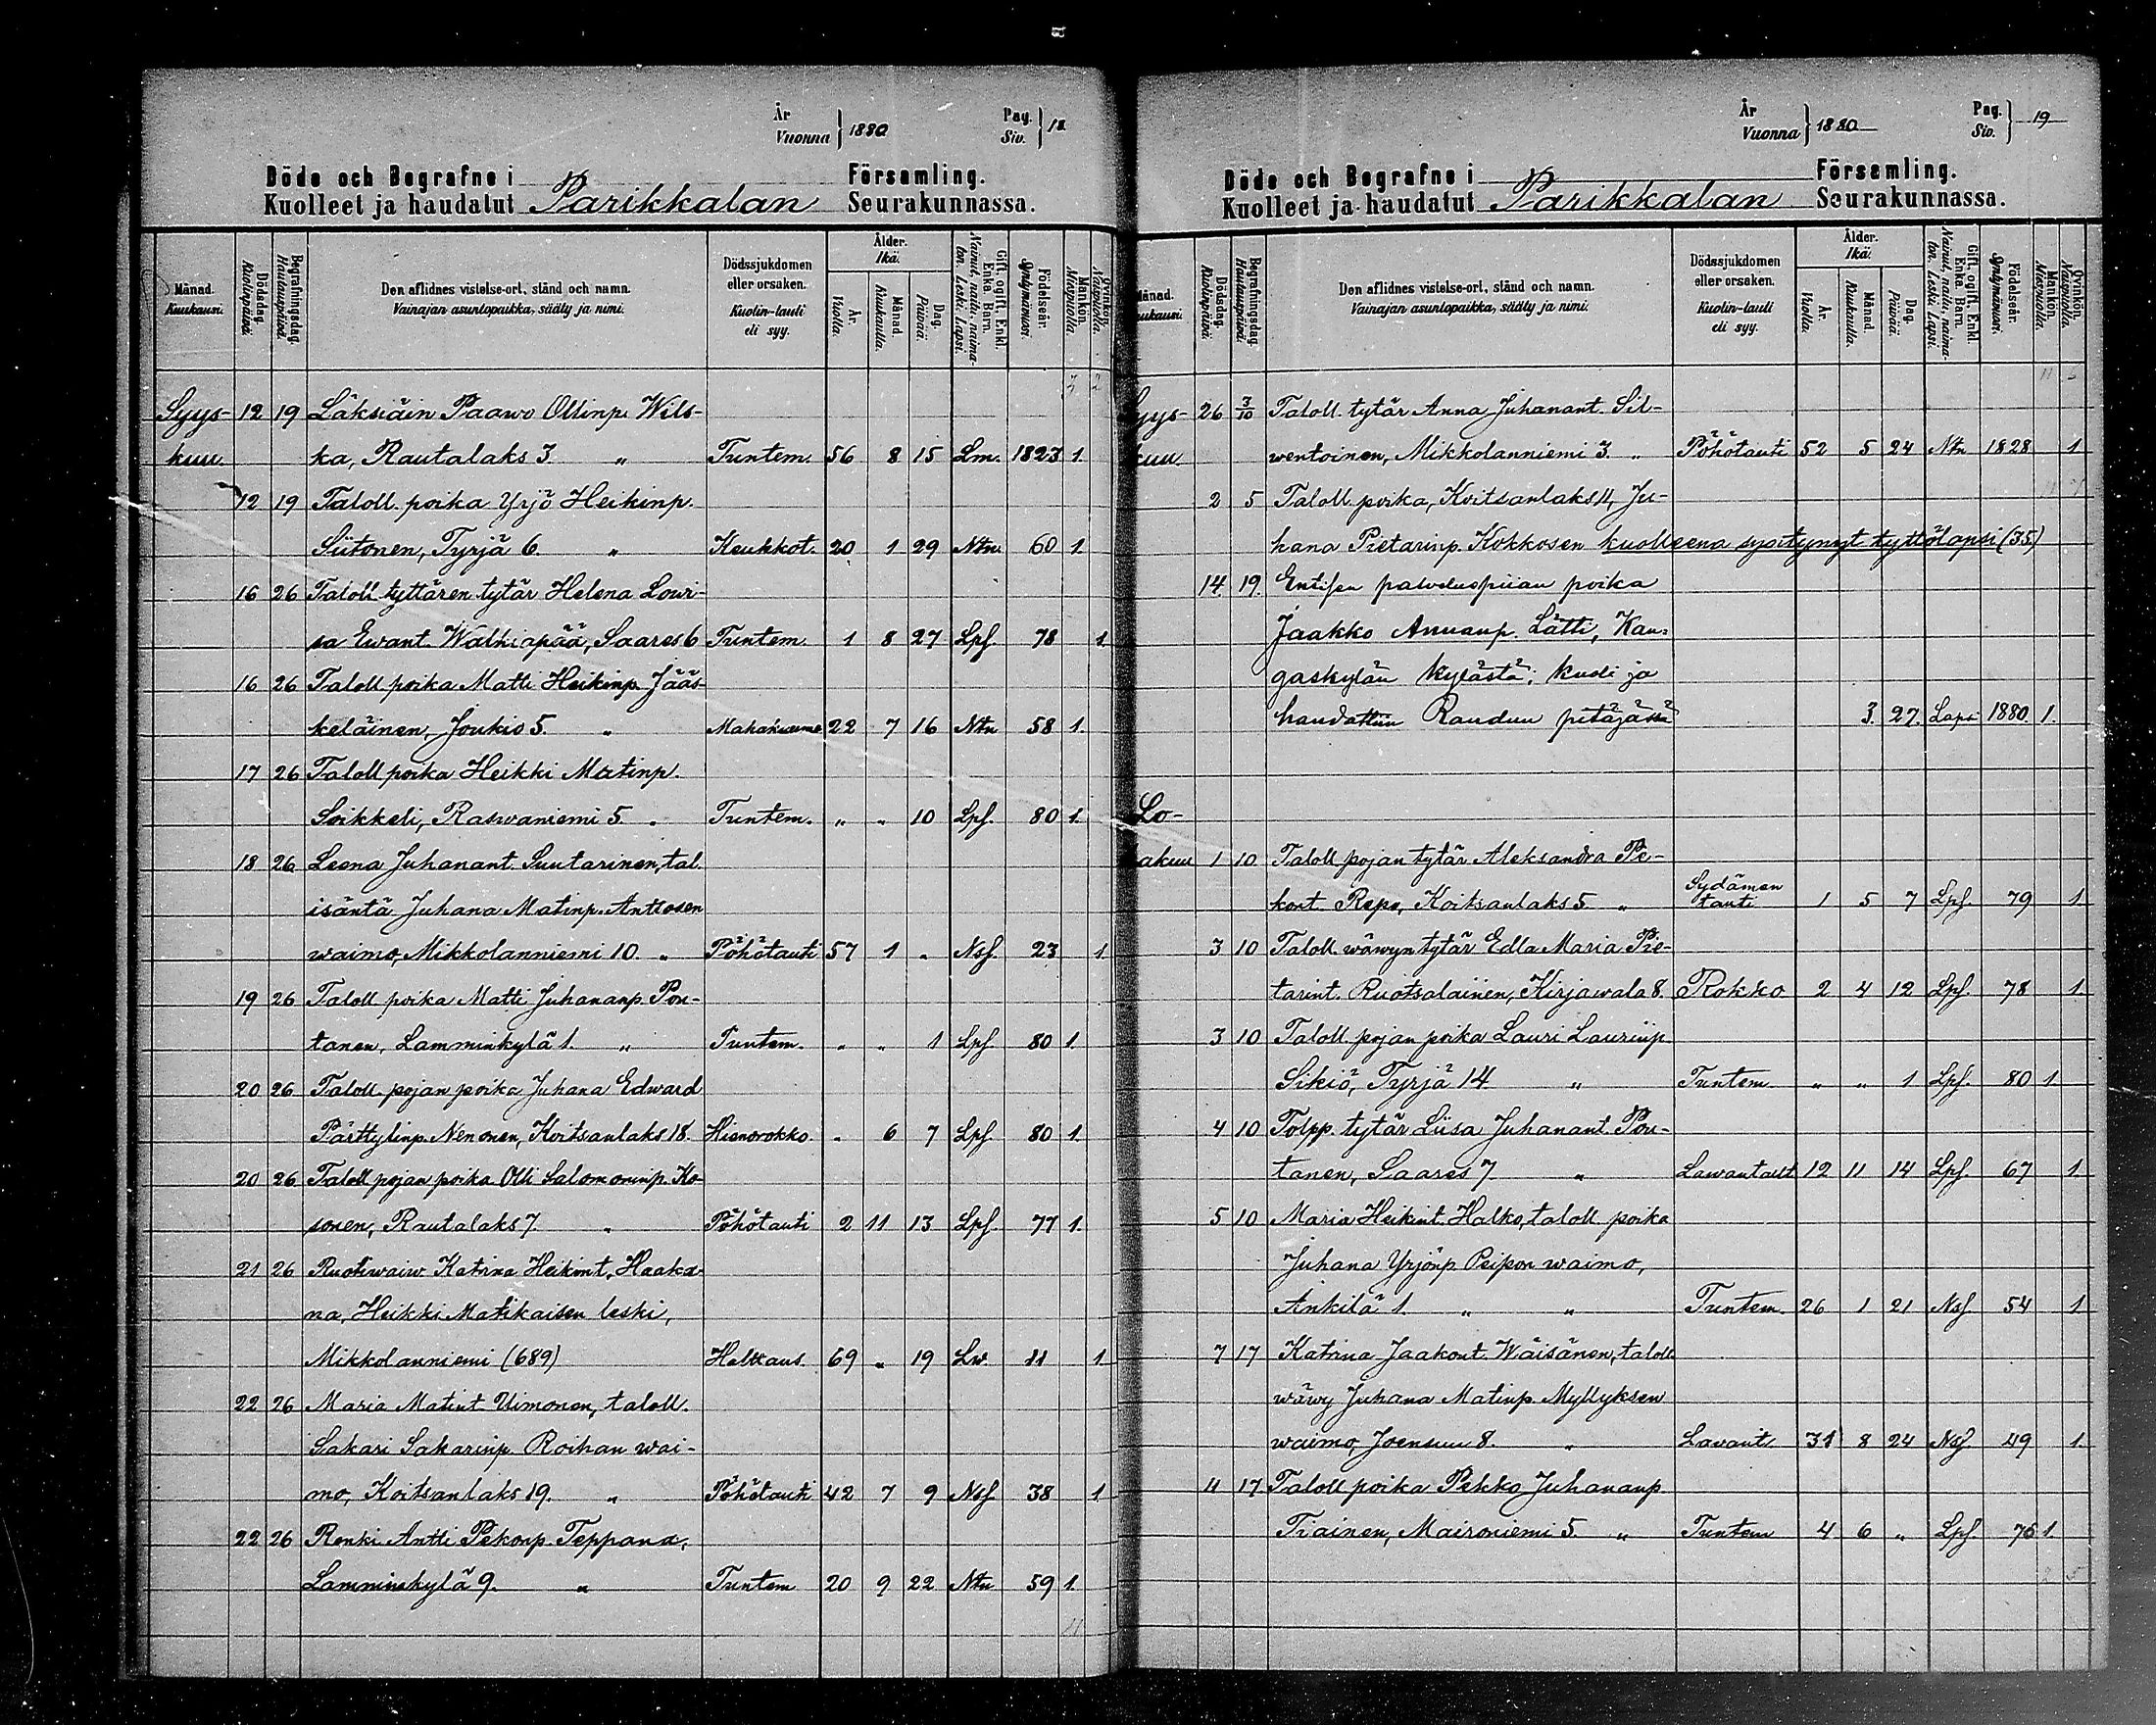 År
Vuonna } 1880
Pag.
Siv. } 18
Döde och Begrafne i Församling.
Kuolleet ja haudatut Parikkalan Seurakunnassa.
Månad. Kuukausi.
Dödsdag. Kuolinpäivä.
Begrafningsdag. Hautauspäivä.
Den aflidnes vistelse-ort, stånd och namn.
Vainajan asuntopaikka, sääty ja nimi.
Dödssjukdomen eller orsaken.
Kuolin-tauti eli syy.
Ålder. Ikä.
År. Vuotta.
Månad. Kuukautta.
Dag. Päivää.
Gift, ogift, Enkl. Enka. Barn.
Nainut, naitu, naimaton. Leski. Lapsi.
Födelseår. Syntymävuosi.
Mankön. Miespuolia.
Qvinkön. Naispuolia.
Syys- 12 19 Läksiäin Paawo Ollinp. Wils-
kuu. ka, Rautalaks 3. " Tuntem. 56 8 15 Lm. 1823 1.
12 19 Taloll. poika Yrjö Heikinp.
Siitonen, Tyrjä 6 " Keuhkot. 20 1 29 Ntn. 60 1.
16 26 Taloll tyttären tytär Helena Lowi-
sa Ewant. Walkiapää, Saares 6 Tuntem. 1 8 27 Lps. 78 1.
16 26 Taloll poika Matti Heikinp. Jääs-
keläinen, Joukio 5. " 22 7 16 Ntn 58 1.
17 26 Taloll poika Heikki Matinp.
Soikkeli, Raswaniemi 5. " Tuntem. " " 10 Lps. 80 1.
18 26 Leena Juhanant. Suutarinen, tal.
isäntä Juhana Matinp. Anttosen
waimo, Mikkolanniemi 10. " Pöhötauti 57 1 " Nsf. 23 1
19 26 Taloll poika Matti Juhananp. Pou-
tanen, Lamminkylä 1. " Tuntem. " " 1 Lps 80 1.
20 26 Taloll. pojan poika Juhana Edward
Pärttylinp. Nenonen, Koitsanlaks 18. Hienorokko. " 6 7 Lps. 80 1.
20 26 Taloll pojan poika Olli Salomoninp. Ko-
sonen, Rautalaks 7. " Pöhötauti 2 11 13 Lps. 77 1.
21 26 Ruotiwaiw. Katrina Heikint. Haaka-
na, Heikki Matikaisen leski,
Mikkolanniemi (689) Halwaus 69 " 19 Lw. 11 1
22 26 Maria Matint. Uimonen, taloll.
Sakari Sakarinp. Roihan wai-
mo, Koitsanlaks 19. " Pöhötauti 42 7 9 Nsf 38 1
22 26 Renki Antti Pekonp. Teppana,
Lamminkylä 9. " Tuntem 20 9 22 Ntn 59 1.
År
Vuonna } 1880
Pag.
Siv. } 19
Döde och Begrafne i Församling.
Kuolleet ja haudatut Parikkalan Seurakunnassa.
Månad. Kuukausi.
Dödsdag. Kuolinpäivä.
Begrafningsdag. Hautauspäivä.
Den aflidnes vistelse-ort, stånd och namn.
Vainajan asuntopaikka, sääty ja nimi.
Dödssjukdomen eller orsaken.
Kuolin-tauti eli syy.
Ålder. Ikä.
År. Vuotta.
Månad. Kuukautta.
Dag. Päivää.
Gift, ogift, Enkl. Enka. Barn.
Nainut, naitu, naimaton. Leski. Lapsi.
Födelseår. Syntymävuosi.
Mankön. Miespuolia.
Qvinkön. Naispuolia.
Syys- 26 3/10 Taloll. tytär Anna Juhanant. Sil-
kuu. wentoinen, Mikkolanniemi 3. " Pöhötauti 52 5 24 Ntn 1828 1
2 5 Taloll. poika, Koitsanlaks 11, Ju-
hana Pietarinp. Kokkosen kuolleena syntynyt tyttölapsi (35)
14. 19. Entisen palveluspiian poika
Jaakko Annanp. Lätti, Kan-
gaskylän kylästä; kuoli ja
haudattiin Raudun pitäjässä 3. 27. Lapsi 1880 1.
Lo-
kakuu 1 10 Taloll pojan tytär Aleksandra Pe-
kont. Repo, Koitsanlaks 5. " Sydämen tauti 1 5 7 Lps. 79 1
3 10 Taloll. wäwyn tytär Edla Maria Pie-
tarint. Ruotsalainen, Kirjawala 8. Rokko 2 4 12 Lps. 78 1
3 10 Taloll. pojan poika Lauri Laurinp.
Sikiö, Tyrjä 14 " Tuntem " " 1 Lps. 80 1
4 10 Tolpp. tytär Liisa Juhanant. Pou-
tanen, Saares 7 " Lawantaut 12 11 14 Lps. 67 1.
5 10 Maria Heikint. Halko, taloll poika
Juhana Yrjönp. Peipon waimo,
Ankilä 1. " " Tuntem. 26 1 21 Nsf 54 1
7 17 Katrina Jaakont. Wäisänen, taloll.
wäwy Juhana Matinp. Myllyksen
waimo, Joensuu 8. " Lavant. 31 8 24 Nsf. 49 1.
11 17 Taloll poika Pekka Juhananp.
Tiainen, Maironiemi 5. " Tuntem 4 6 " Lps. 76 1.